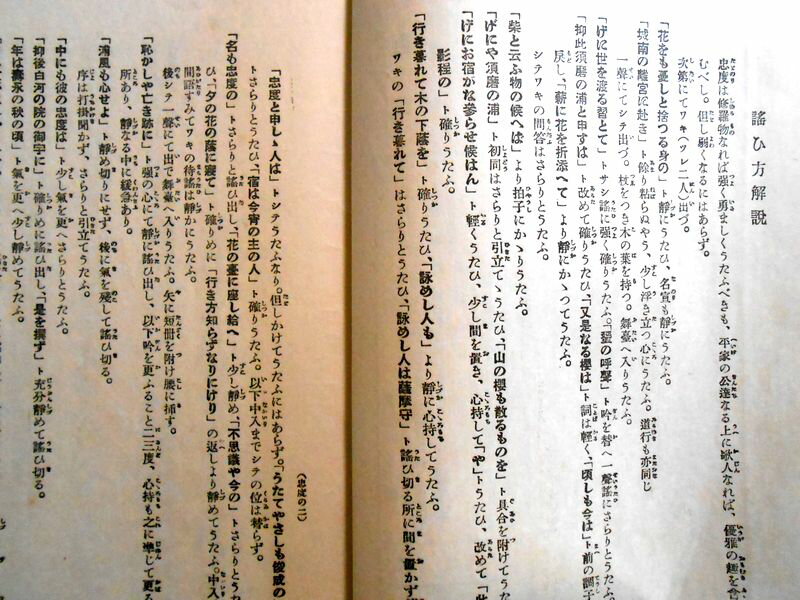 謠ひ方解説
忠度は修羅物なれば强く勇ましくうたふべきも、平家の公達なる上に歌人なれば、優雅の趣を含
むべし。但し弱くなるにはあらず。
次第にてワキ(ツレ二人)出づ。
「花をも憂しと捨つる身の」ト靜にうたひ、名宣も靜にうたふ。
「城南の離宮に赴き」ト餘り粘らぬやう、少し浮き立つ心にうたふ。道行も亦同じ
一聲にてシテ出づ。杖をつき木の葉を持つ。舞臺へ入りうたふ。
「げに世を渡る習とて」ト サシ謠に强く確りうたふ。「蜑の呼聲」ト吟を替へ一聲謠にさらりとうたふ。
「抑此須磨の浦と申すは」ト改めて確りうたふ「又是なる櫻は」ト詞は輕く、「頃しも今は」ト前の調子
戾し、「薪に花を折添へて」より靜にかゝつてうたふ。
シテワキの問答はさらりとうたふ。
「柴と云ふ物の候へば」より拍子にかゝりうたふ。
「げにや須磨の浦」ト初同はさらりと引立てゝうたひ、「山の櫻も散るものを」ト具合を附けてうた
「げにお宿がな參らせ候はん」ト輕くうたひ、少し間を置き、心持して「や」トうたひ、改めて「
影程の」ト確りうたふ。
「行き暮れて木の下蔭を」ト確りうたひ、「詠めし人も」より靜に心持してうたふ。
ワキの「行き暮れて」はさらりとうたひ、「詠めし人は薩摩守」ト謠ひ切る所に間を置かず
(忠度の二)
「忠度と申しゝ人は」トシテうたふなり。但しかけてうたふにはあらず。「うたてやさしも俊成の
トさらりとうたひ、「宿は今宵の主の人」ト確りうたふ。以下中入までシテの位は替らず。
「名も忠度の」トさらりと謠ひ出し、「花の臺に座し給へ」ト少し靜め、「不思議や今の」トさらりとうた
ひ、「夕の花の蔭に寢て」ト確りめに「行き方知らずなりにけり」の返しより靜めてうたふ。中入
間語すみてワキの待謠は靜めにうたふ。
後シテ一聲にて出で舞臺へ入りうたふ。矢に短冊を附け腰に挿す。
「恥かしや亡き跡に」ト强の心にて靜に謠ひ出し、以下吟を更ふること二三度、心持も之に準じて更る
所あり、靜なる中に緩急あり。
「浦風も心せよ」ト靜め切りにせず、後に氣を殘して謠ひ切る。
序は打掛聞かず、さらりと引立てうたふ。
「中にも彼の忠度は」ト少し氣を更へさらりとうたふ。
「抑後白河の院の御宇に」ト確りめに謠ひ出し、「是を撰す」ト充分靜めて謠ひ切る。
「年は壽永の秋の頃」ト氣を更へ少し靜めてうたふ。